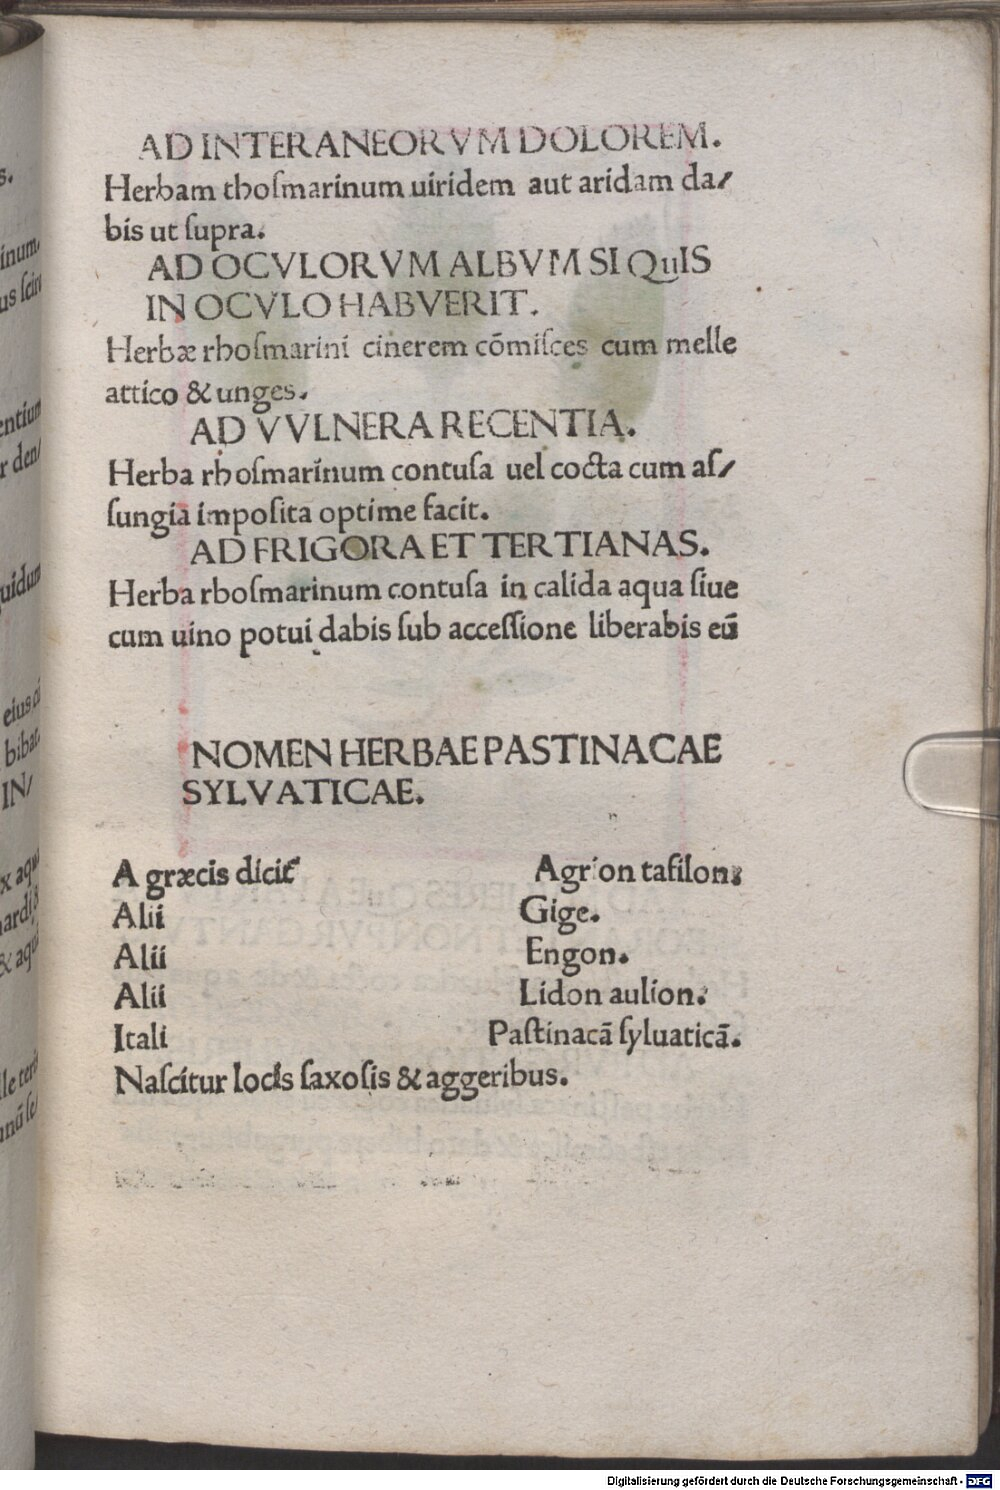 AD INTERANEORVM DOLOREM.
Herbam thoſmarinum uiridem aut aridam da/
bis ut ſupra.
AD OCVLORVM ALBVM SI QuIS
IN OCVLO HABVERIT.
Herbæ rhoſmarini cinerem cōmiſces cum melle
attico & unges.
AD VVLNERA RECENTIA.
Herba rhoſmarinum contuſa uel cocta cum aſ/
ſungia impoſita optime facit.
AD FRIGORA ET TERTIANAS.
Herba rhoſmarinum contuſa in calida aqua ſiue
cum uino potui dabis ſub acceſſione liberabis eū
NOMEN HERBAE PASTINACAE
SYLVATICAE.
A græcis dicit᷑ Agrion taſilon:
Alii Gige.
Alii Engon.
Alii Lidon aulion.
Itali Paſtinacā ſyluaticā.
Naſcitur locis ſaxoſis & aggeribus.
Digitalisierung gefördert durch die Deutsche Forschungsgemeinschaft - DFG